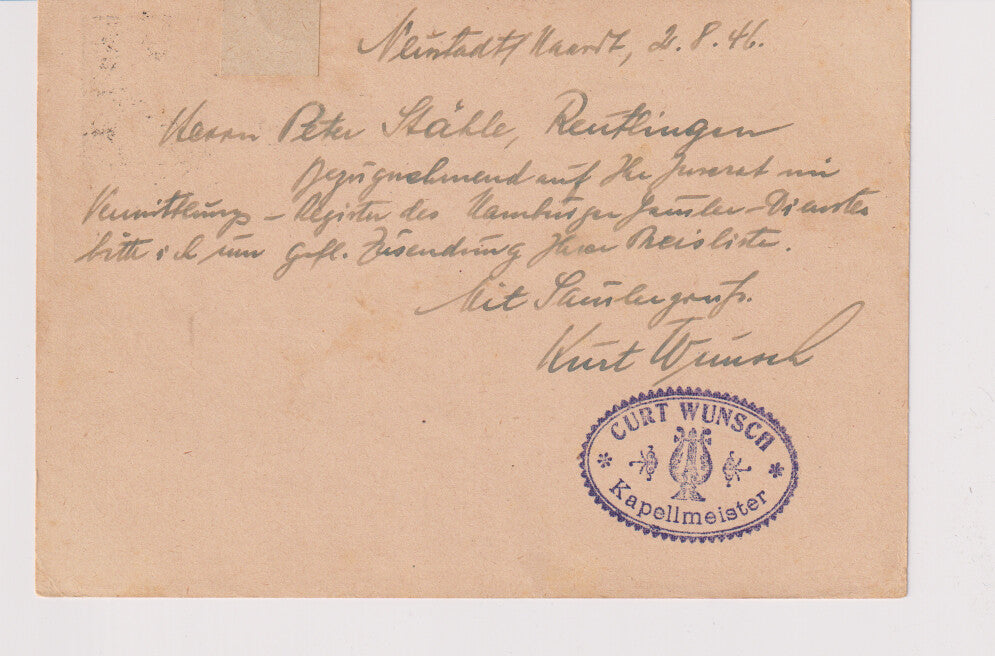 Neustadt/Haardt, 2.8.46.
Herrn Peter Stähle, Reutlingen
Bezugnehmend auf Ihr Inserat im
Vermittlungs-Register des Hamburger Sammler-Dienstes
bitte ich um gefl. Zusendung Ihrer Preisliste.
Mit Sammlergruß.
Kurt Wunsch
CURT WUNSCH
Kapellmeister